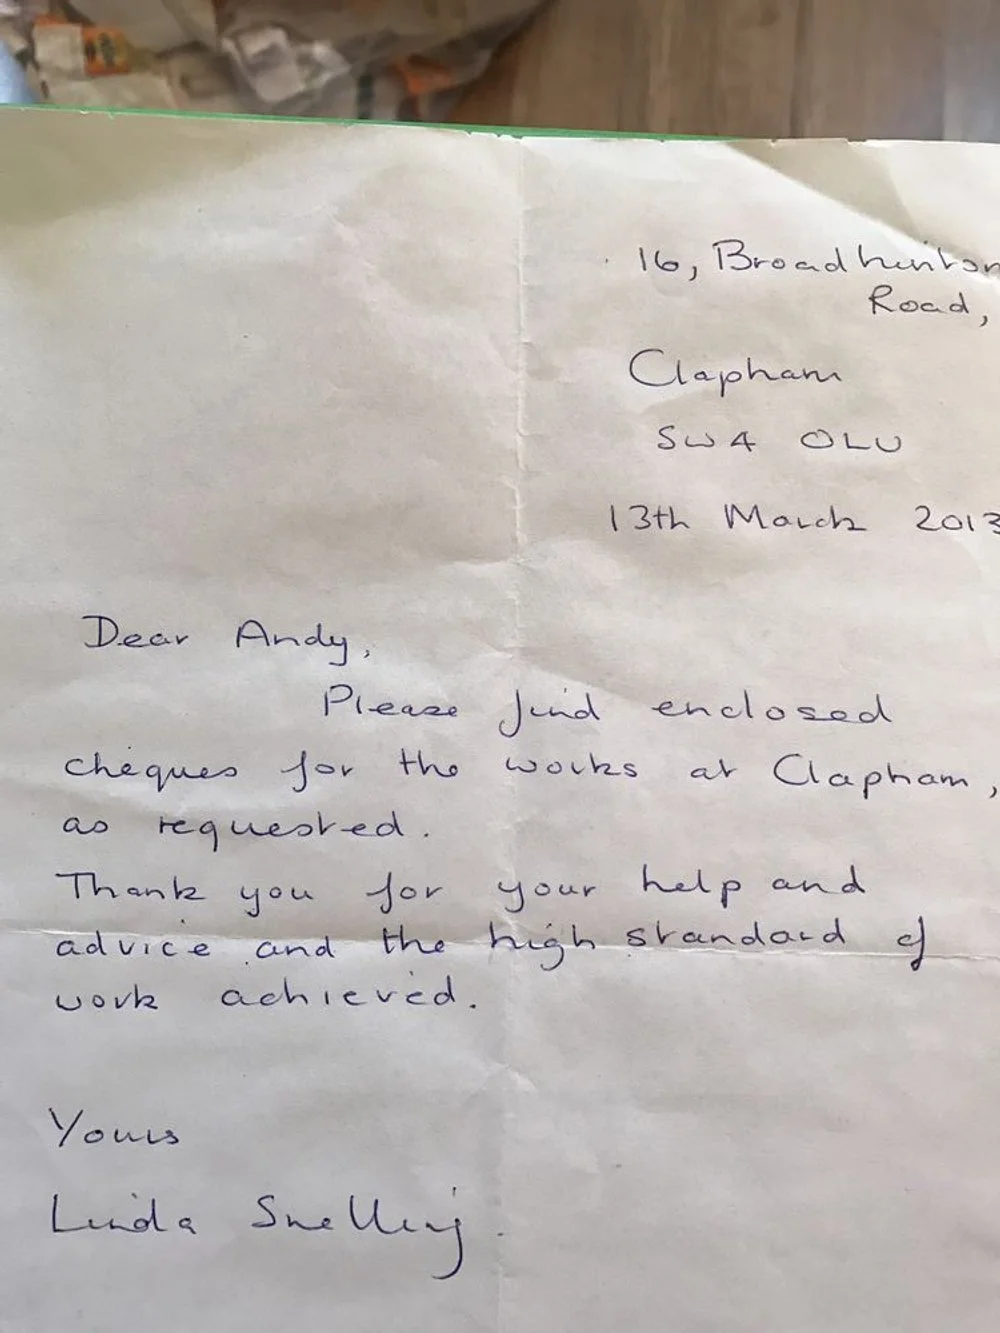 16, Broadhinton
Road,
Clapham
SW4 OLU
13th March 2013
Dear Andy,
Please find enclosed
cheques for the works at Clapham,
as requested.
Thank you for your help and
advice and the high standard of
work achieved.
Yours
Linda Snelling